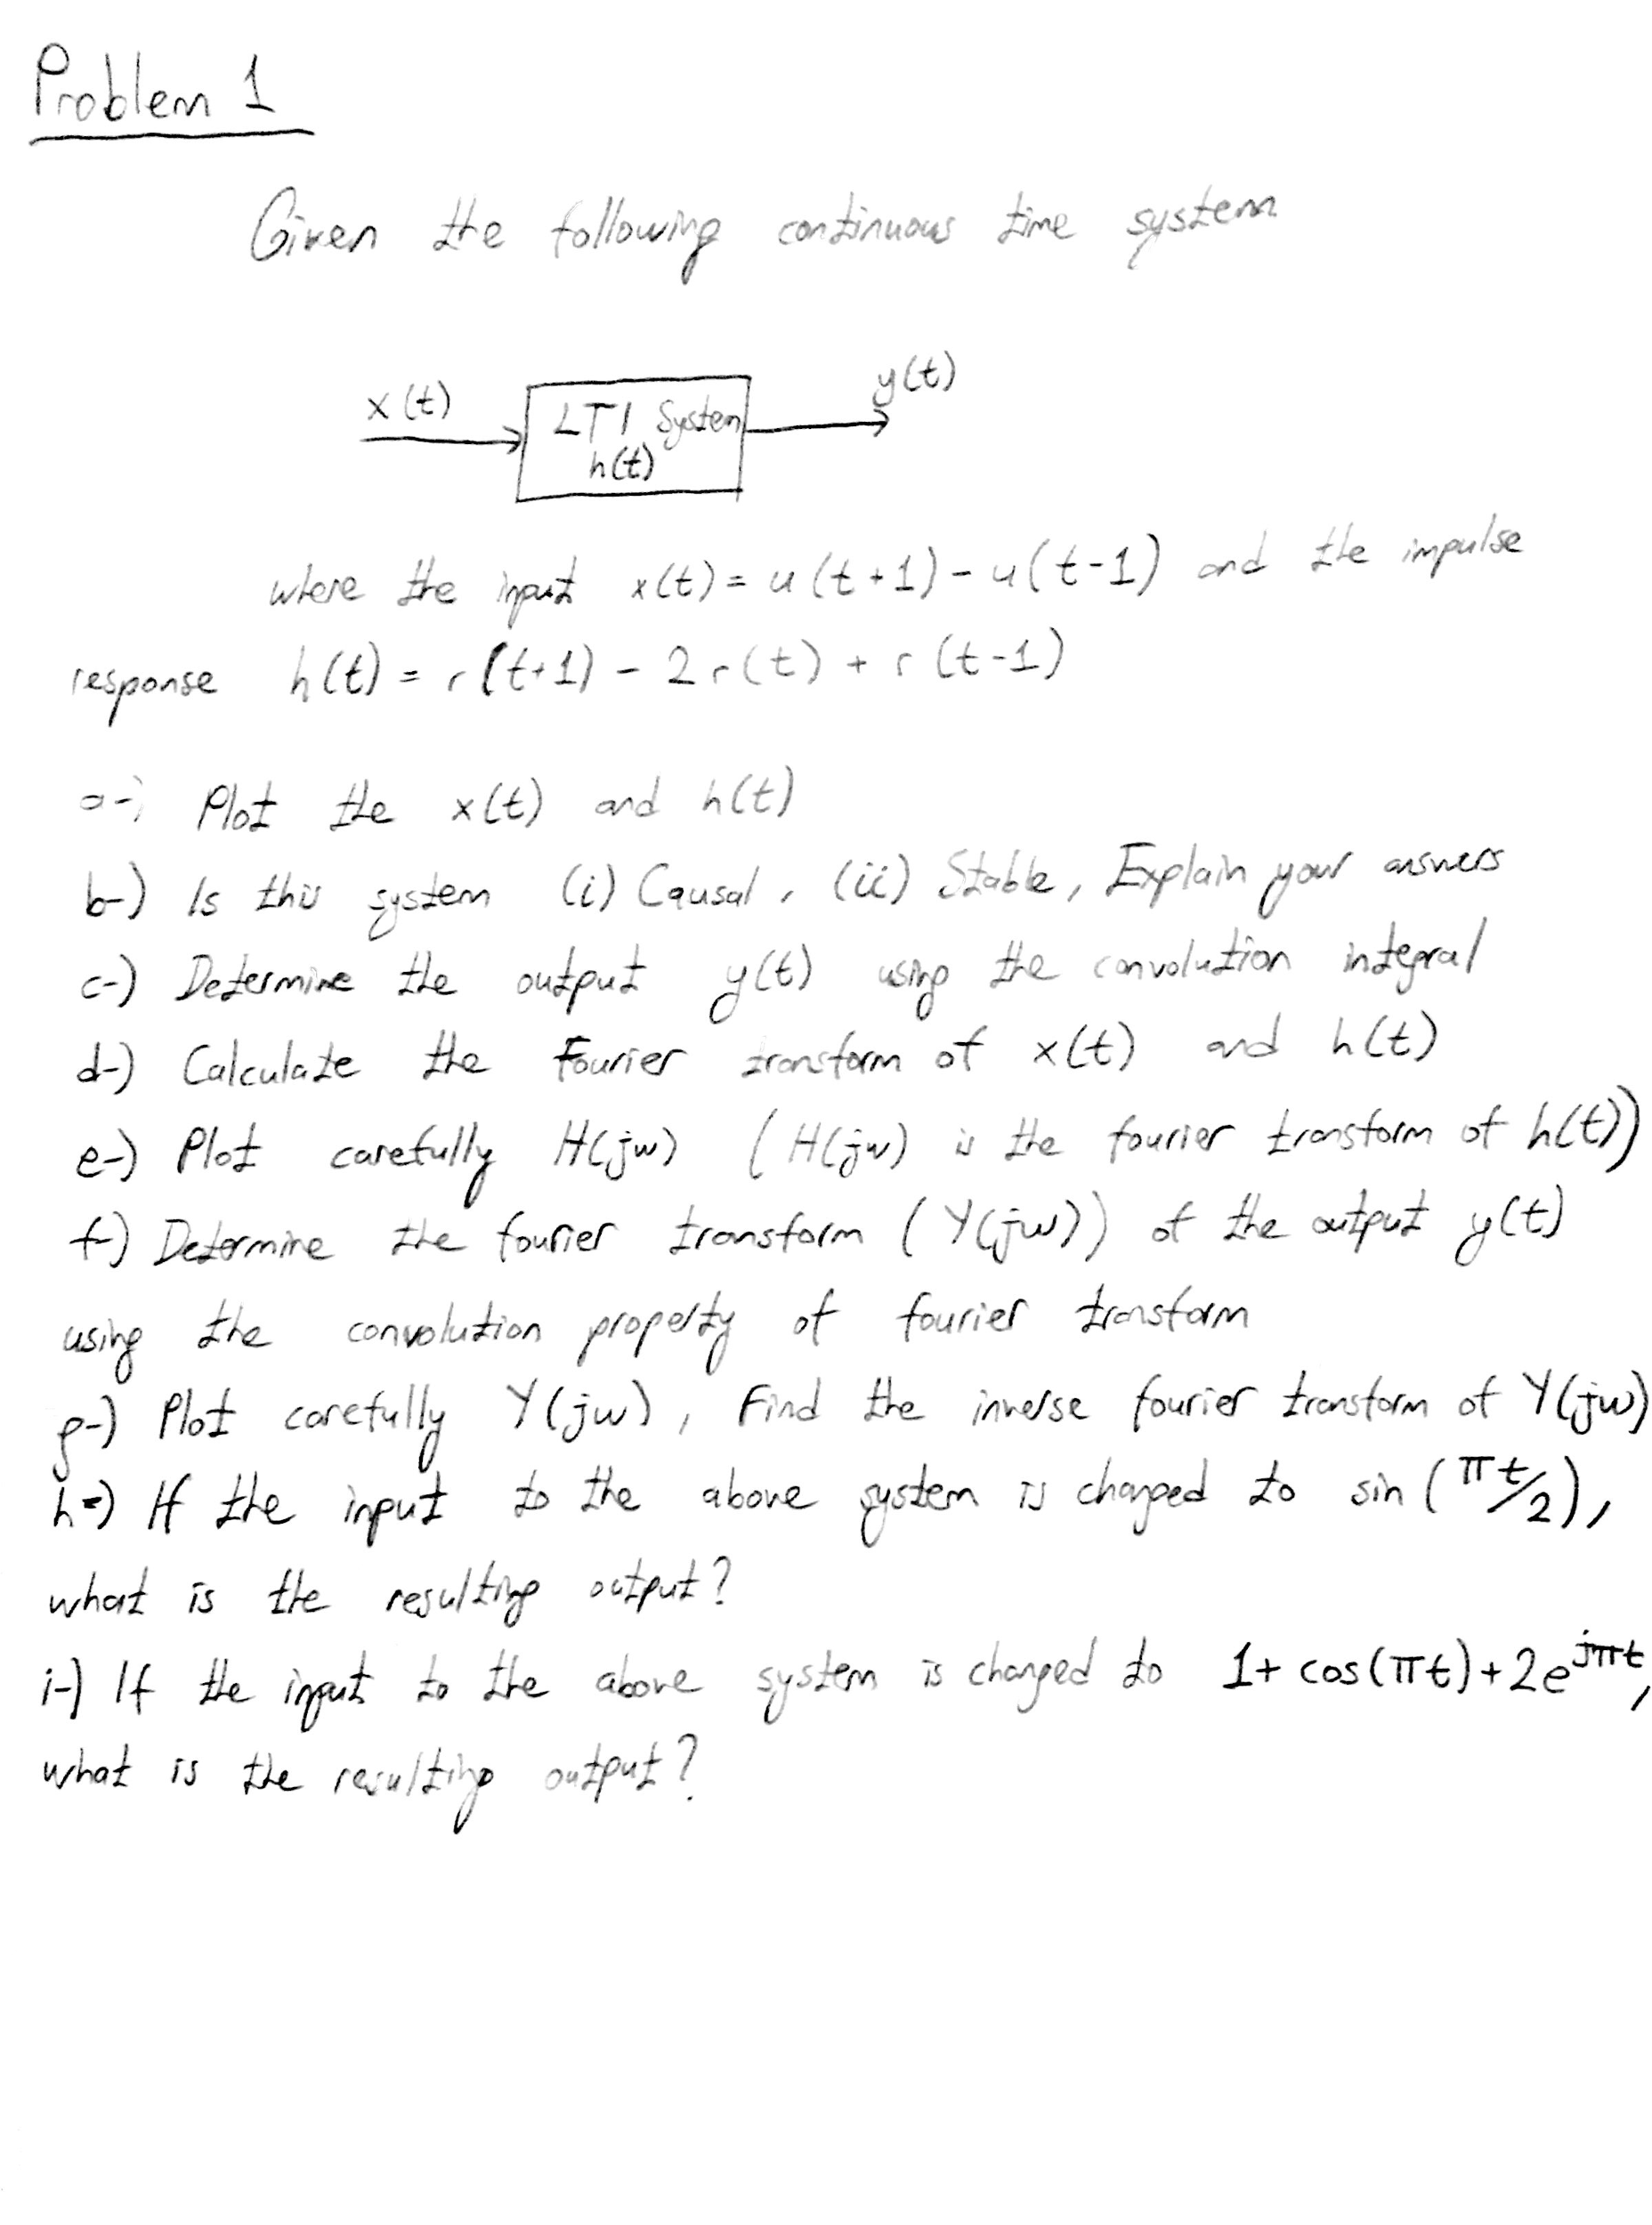 Problem 1
Given the following continuous time system
x(t)
LTI System
h(t)
y(t)
where the input x(t) = u(t+1) - u(t-1) and the impulse
response h(t) = r(t+1) - 2r(t) + r(t-1)
a-) Plot the x(t) and h(t)
b-) Is this system (i) Causal, (ii) Stable, Explain your answers
c-) Determine the output y(t) using the convolution integral
d-) Calculate the Fourier transform of x(t) and h(t)
e-) Plot carefully H(jw) (H(jw) is the fourier transform of h(t))
f-) Determine the fourier transform (Y(jw)) of the output y(t)
using the convolution property of fourier transform
g-) Plot carefully Y(jw), Find the inverse fourier transform of Y(jw)
h-) If the input to the above system is changed to sin(πt/2),
what is the resulting output?
i-) If the input to the above system is changed to 1+ cos(πt) + 2e^{jπt},
what is the resulting output?